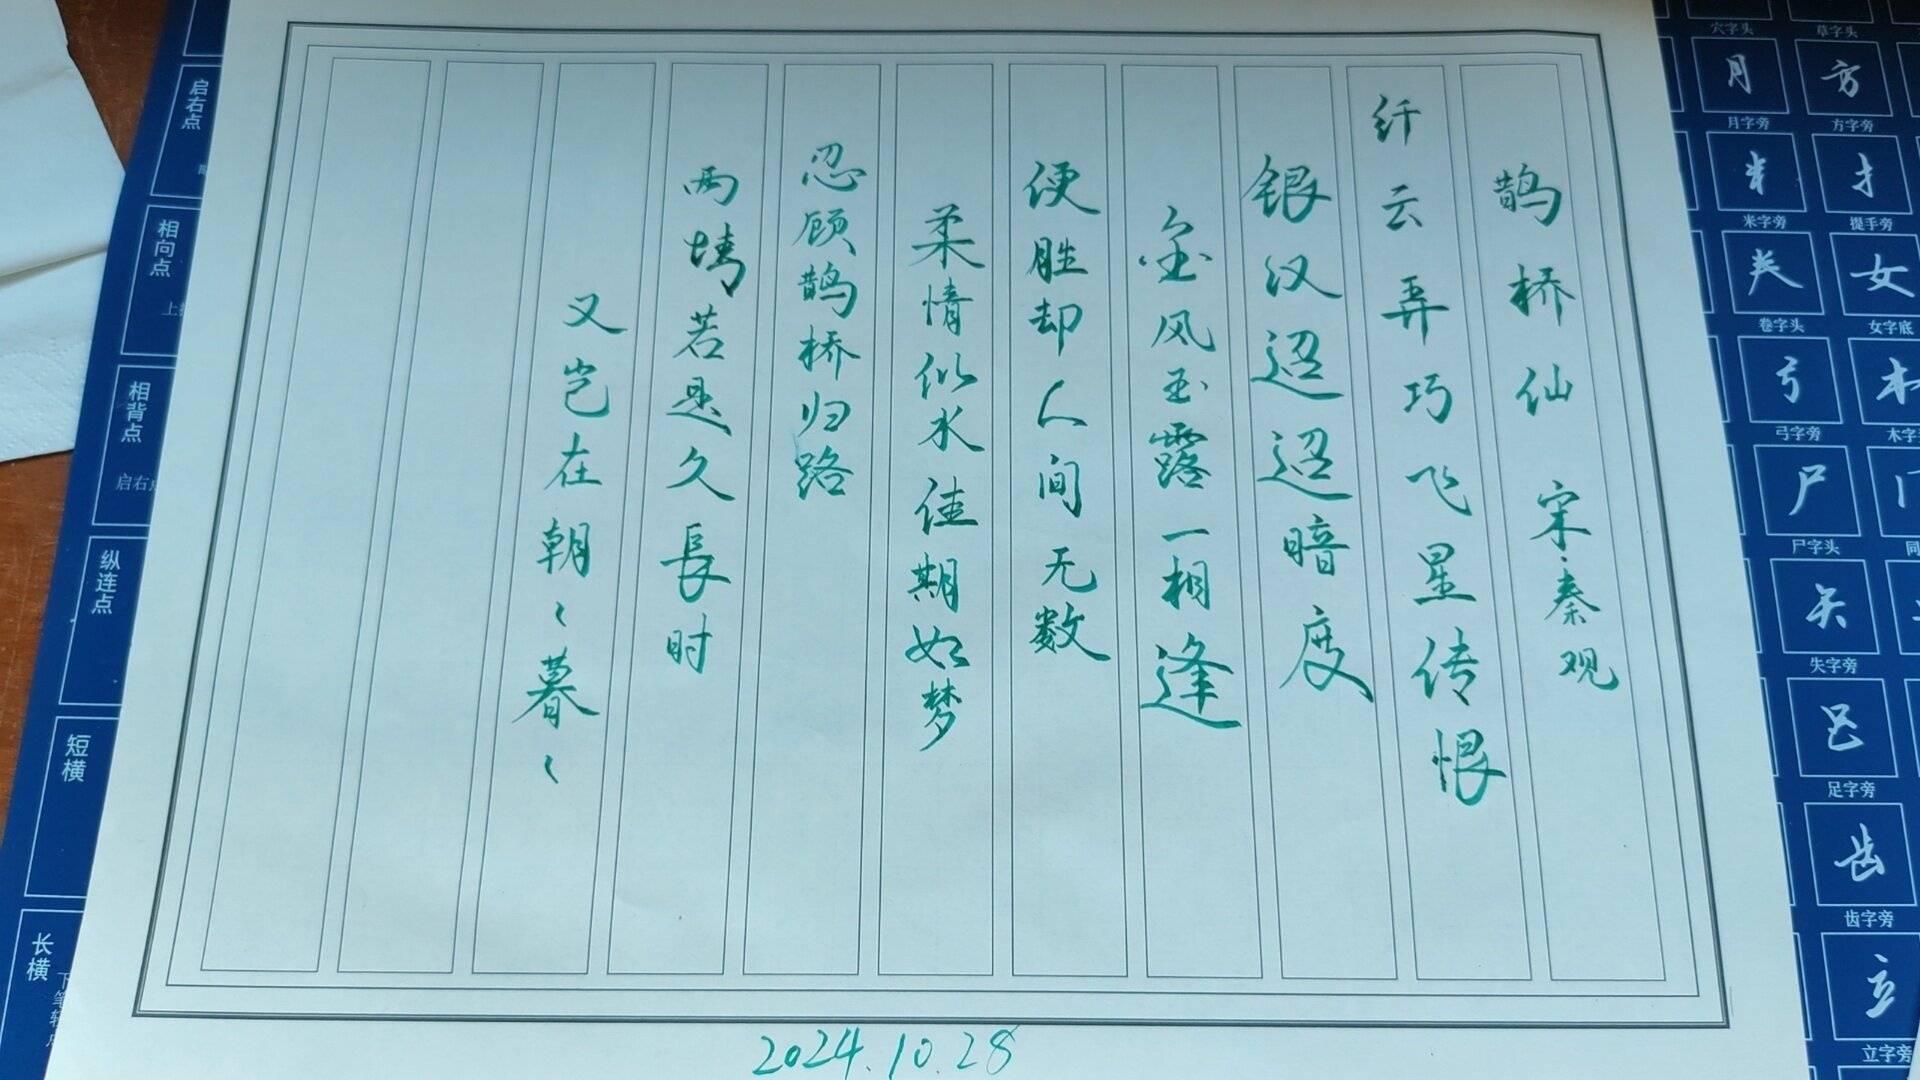 鹊桥仙 宋·秦观
纤云弄巧飞星传恨
银汉迢迢暗度
金风玉露一相逢
便胜却人间无数
柔情似水佳期如梦
忍顾鹊桥归路
两情若是久長时
又岂在朝〻暮〻
2024.10.28
启右点
相向点
相背点
启右点
纵连点
短横
长横
穴字头 草字头
月 方
月字旁 方字旁
米字旁 提手旁
卷字头 女字底
弓字旁 木字
尸字头 同
失字旁
足字旁
齿字旁
立字旁